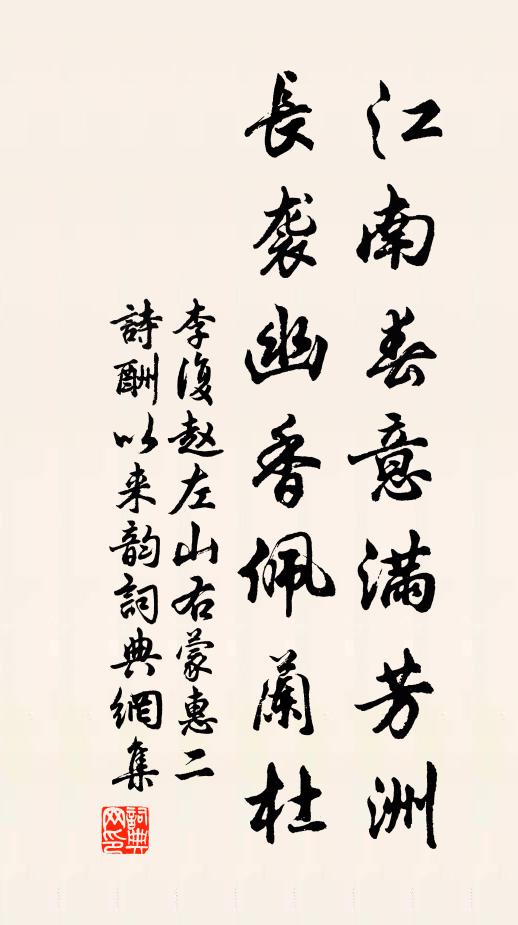 江南春意满芳洲
長袭幽香佩蘭杜
李復赵左山右蒙惠二
詩酬以来韵詞典網集
詞典网印